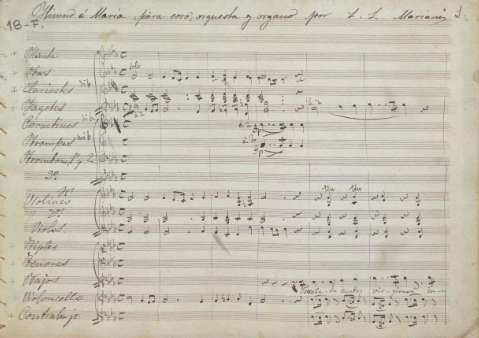 Himno á Maria para coro, orquesta y organo por L. L. Mariani
18-7.
Flauta
Oboes
Clarinetes
Fagotes
Cornetines
Trompas
Trombon 1º y 2º
3º
Violines 1º
2º
Violas
Tiples
Tenores
Bajos
Violoncello
Contrabajo